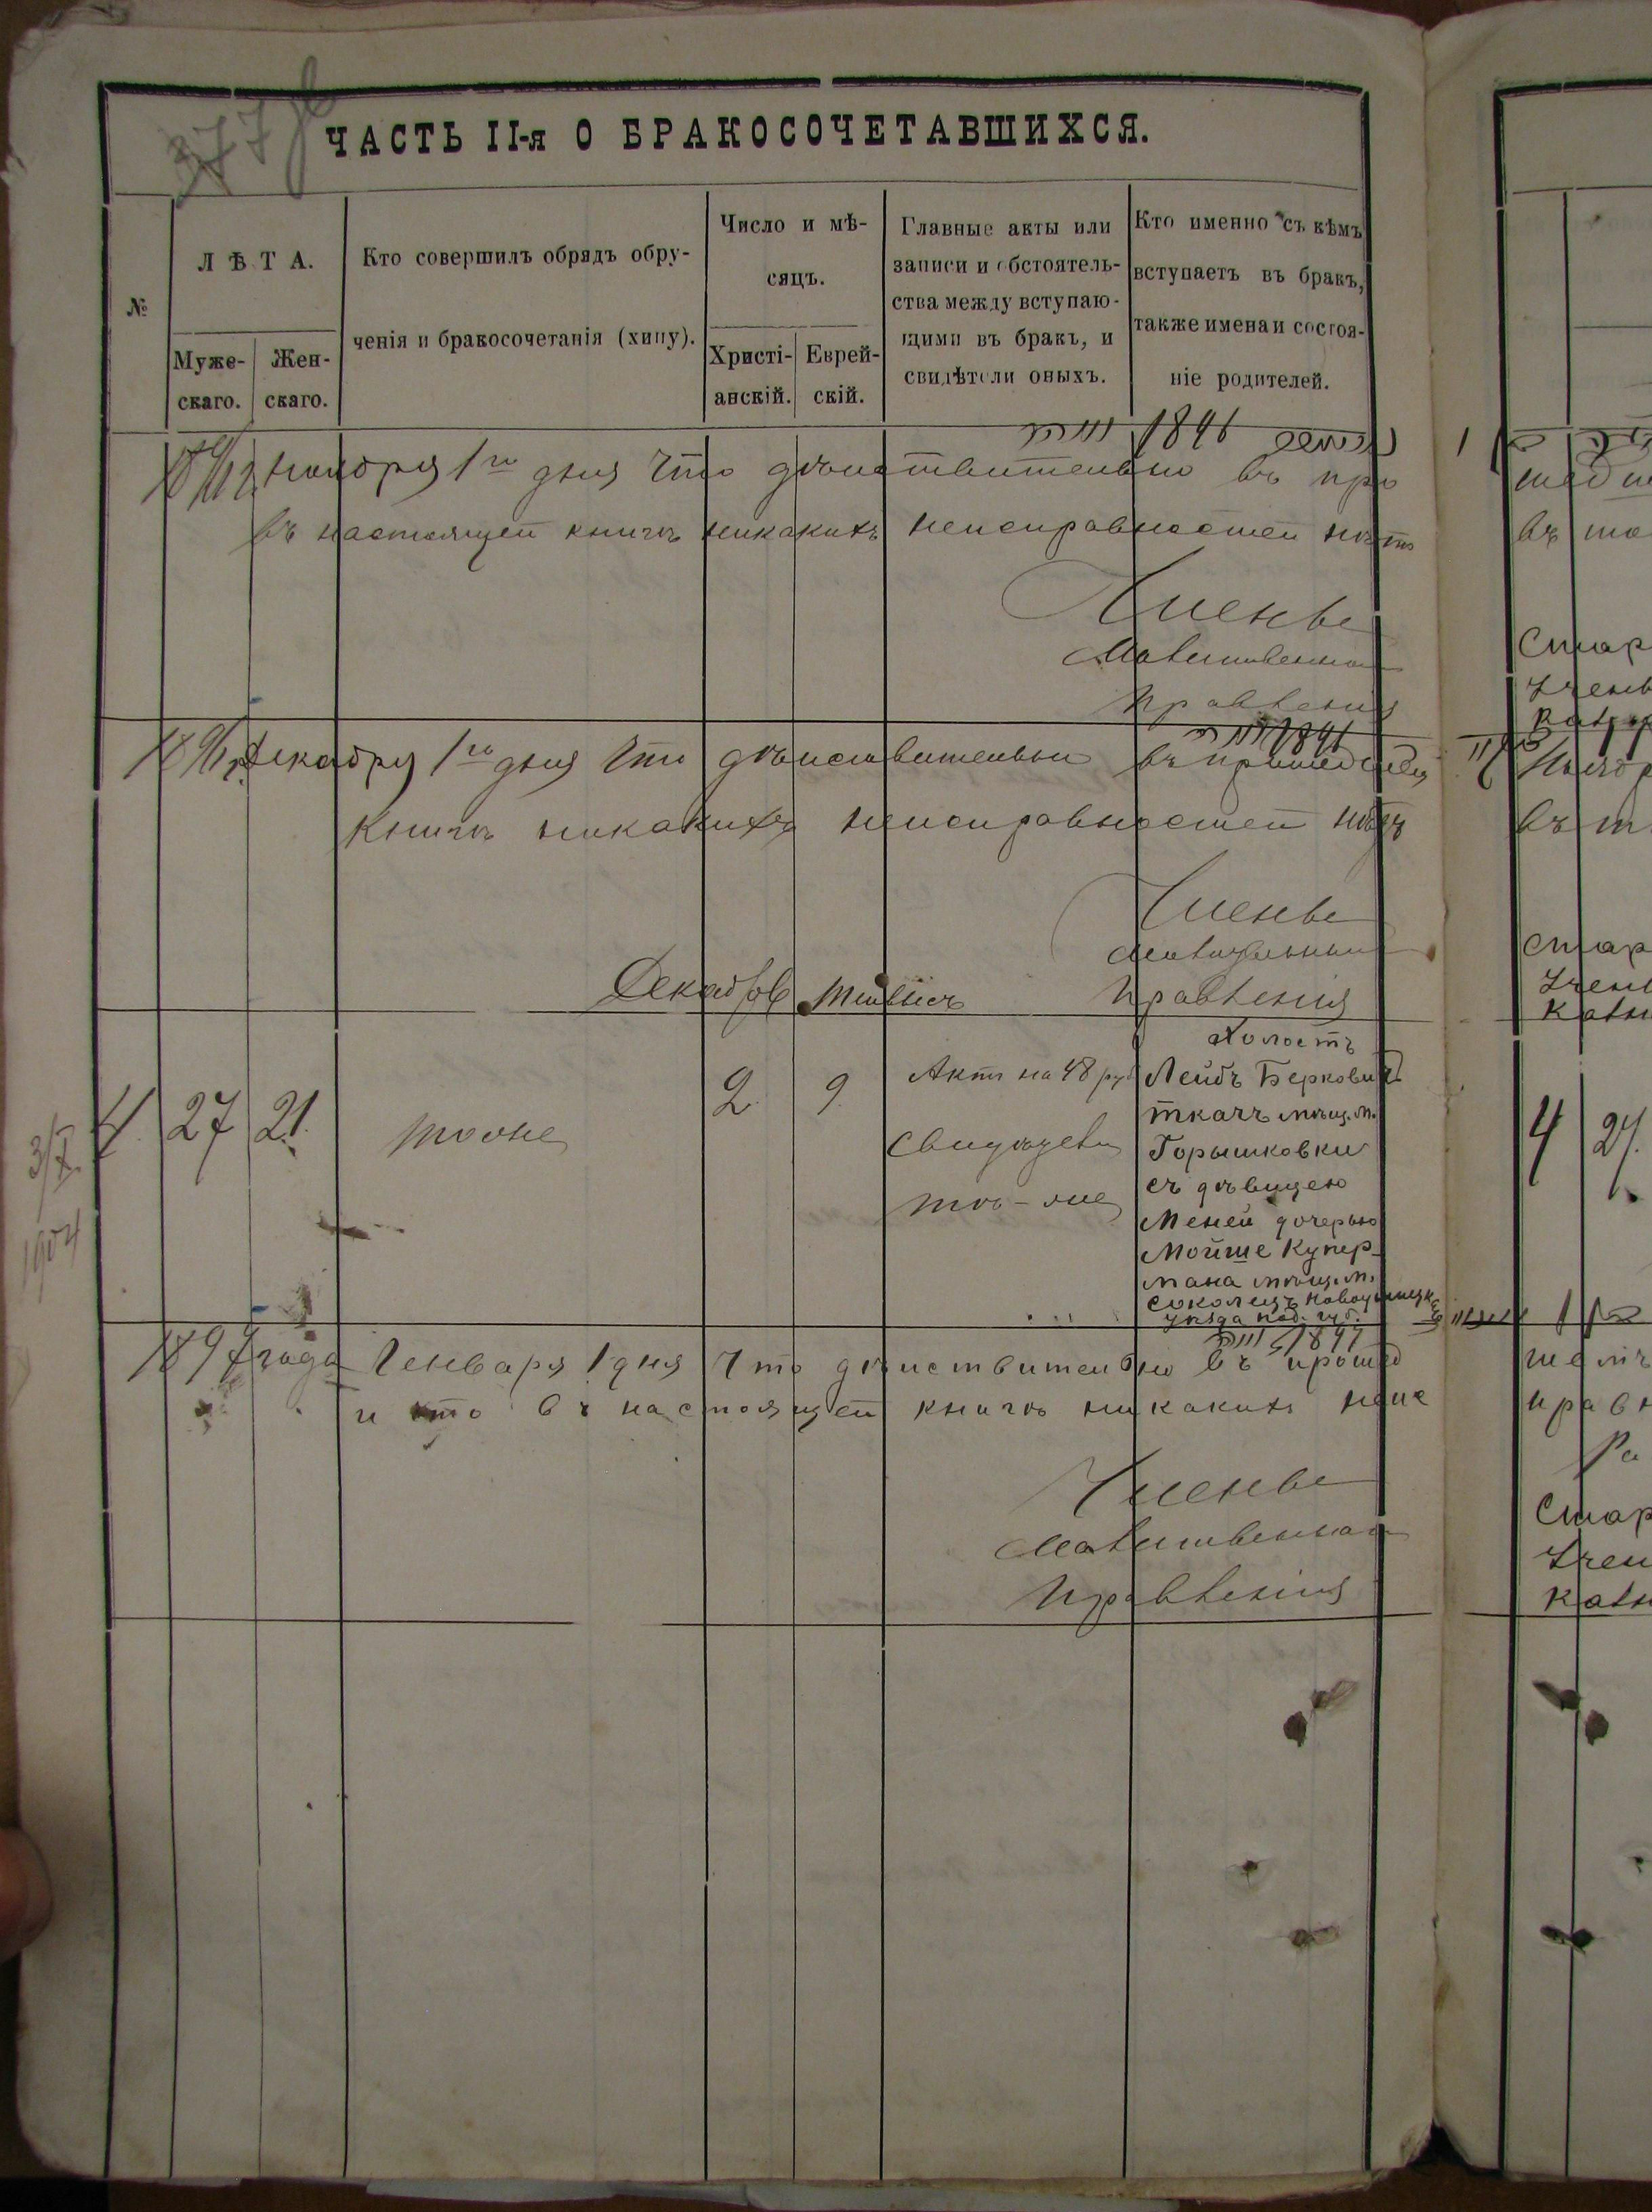 377
ЧАСТЬ II-я О БРАКОСОЧЕТАВШИХСЯ.
№
ЛѢТА.
Муже-
скаго.
Жен-
скаго.
Кто совершилъ обрядъ обру-
ченія и бракосочетанія (хипу).
Число и мѣ-
сяцъ.
Христі-
анскій.
Еврей-
скій.
Главные акты или
записи и обстоятель-
ства между вступаю-
щими въ бракъ, и
свидѣтели оныхъ.
Кто именно съ кѣмъ
вступаетъ въ бракъ,
также имена и состоя-
ніе родителей.
Ноября 1го дня Что дѣйствительно въ про
въ настоящей книгѣ никакихъ неисправностей нѣтъ
Члены
Правленія
Декабря 1го дня Что дѣйствительно въ прошедшем
книгѣ никакихъ неисправностей нѣтъ
Члены
Правленія
Декабрь мѣсяцъ
4. 27 21.
тоже
2. 9.
Актъ на 48 руб
свидѣтели
тѣ-же
Холостъ
Лейбъ Берковичъ
ткачъ мѣщ. м.
Горышковки
съ дѣвицею
Меней дочерью
Мойше Купер-
мана мѣщ. м.
Соколецъ Новоушицкаго
уѣзда Под. губ.
3/I
1904
1897 года Генваря 1 дня Что дѣйствительно въ прошед
и что въ настоящей книгѣ никакихъ неис
Члены
Правленія
1
шед
въ
Стар
Учен
въ
Стар
Учен
Казн
4 27.
шемъ
правн
Ра
Стар
Учен
Казн